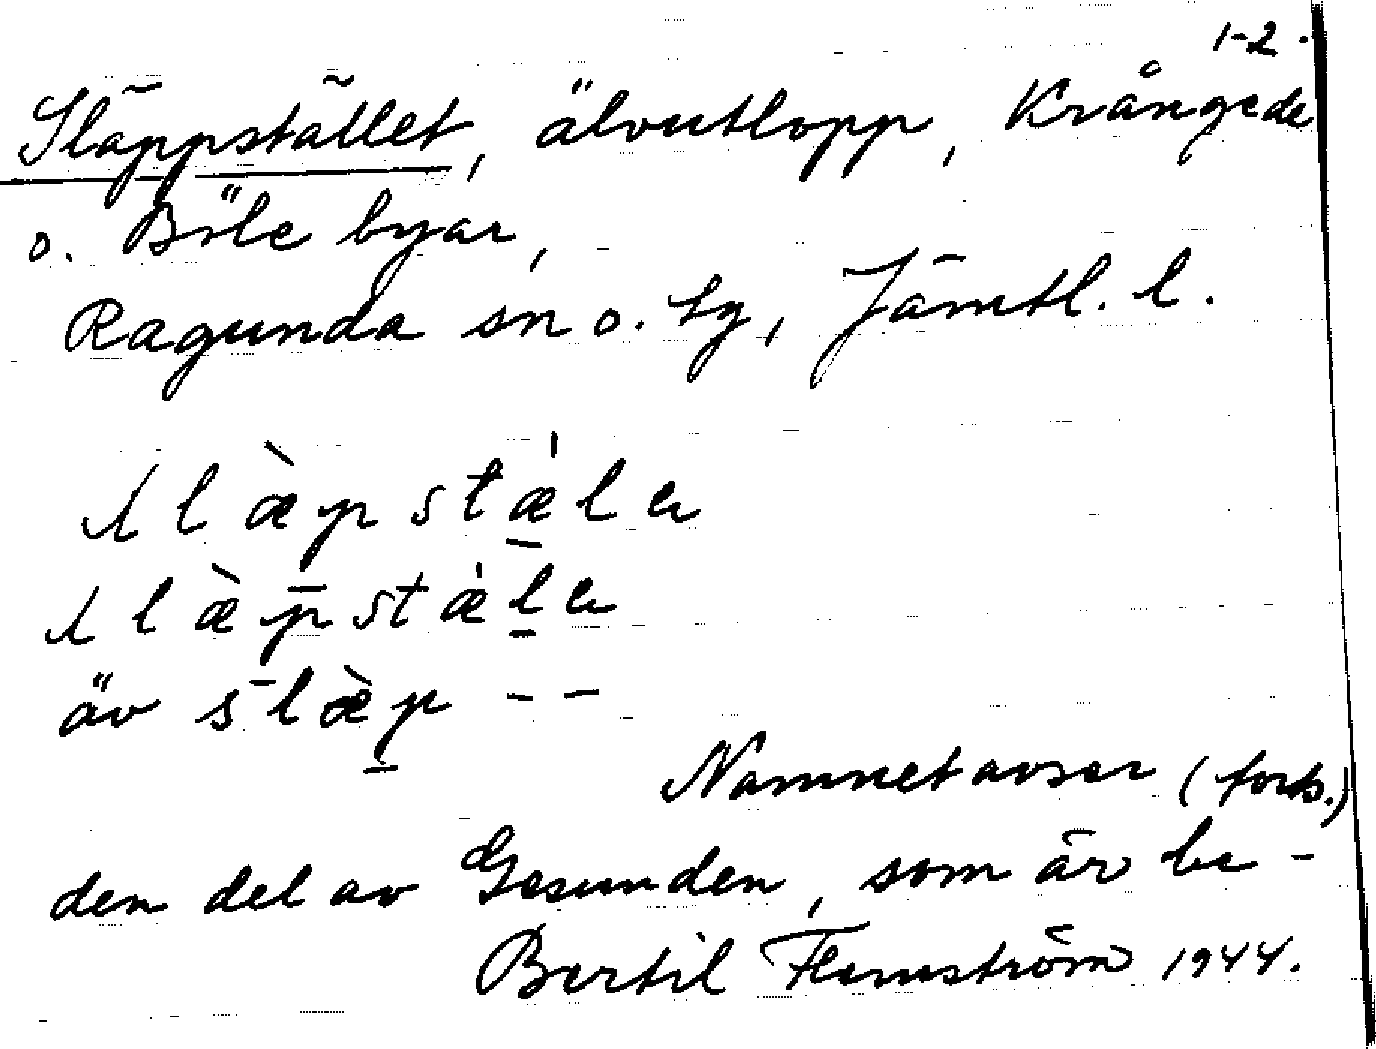 1-2.
Släppstället, älvutlopp, Krångede
o. Böle byar,
Ragunda sn o. tg, Jämtl. l.
slæ̀pstæ̀la
slæ̀pstæ̀la
äv slæ̀p - -
Namnet avser (forts.)
den del av Gesunden, som är be-
Bertil Flemström 1944.